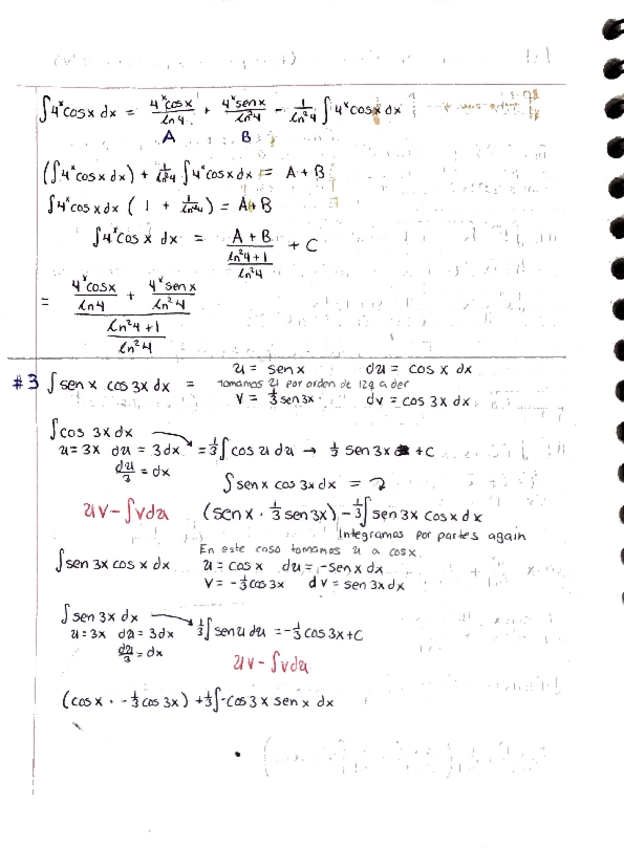 ∫4ˣcosx dx = 4ˣcosx/ln4 + 4ˣsenx/ln²4 − 1/ln²4 ∫4ˣcosx dx
A B
(∫4ˣcosx dx) + 1/ln²4 ∫4ˣcosx dx = A + B
∫4ˣcosx dx ( 1 + 1/ln²4 ) = A+B
∫4ˣcos x dx = (A + B)/((ln²4+1)/ln²4) + C
= (4ˣcosx/ln4 + 4ˣsenx/ln²4)/((ln²4+1)/ln²4)
u = senx du = cos x dx
#3 ∫senx cos3x dx = tomamos u por orden de izq a der
v = 1/3 sen3x dv = cos 3x dx
∫cos 3x dx
u = 3x du = 3dx = 1/3∫cos u du → 1/3 sen3x +C
du/3 = dx
∫senx cos3x dx =
uv − ∫vdu (senx · 1/3 sen3x) − 1/3∫sen3x cosx dx
Integramos por partes again
En este caso tomamos u a cosx
∫sen3x cosx dx u = cosx du = -senx dx
v = -1/3cos3x dv = sen3xdx
∫sen3x dx
u=3x du = 3dx 1/3∫senu du = -1/3 cos3x+C
du/3 = dx
uv − ∫vdu
(cosx · -1/3 cos3x) + 1/3∫-cos3x senx dx